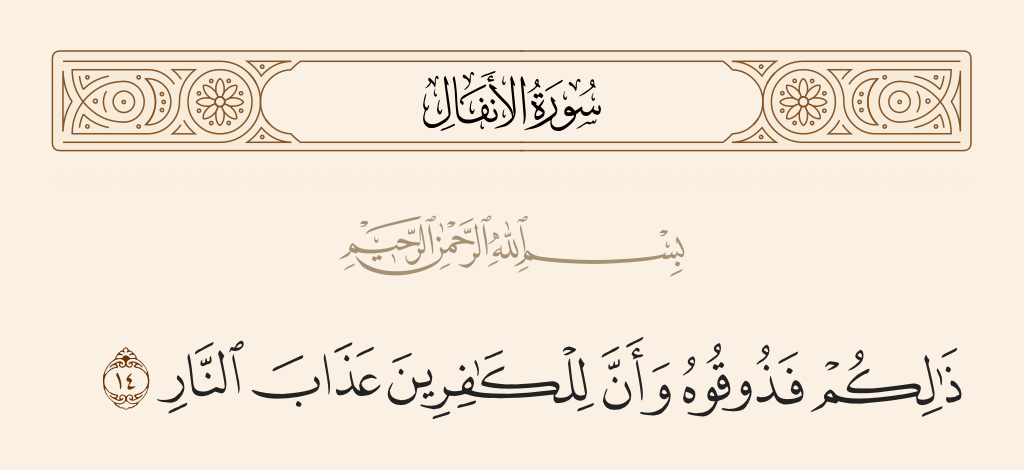 سُورَةُ الأَنفَالِ
بِسْمِ ٱللَّهِ ٱلرَّحْمَٰنِ ٱلرَّحِيمِ
ذَٰلِكُمْ فَذُوقُوهُ وَأَنَّ لِلْكَـٰفِرِينَ عَذَابَ ٱلنَّارِ ١٤